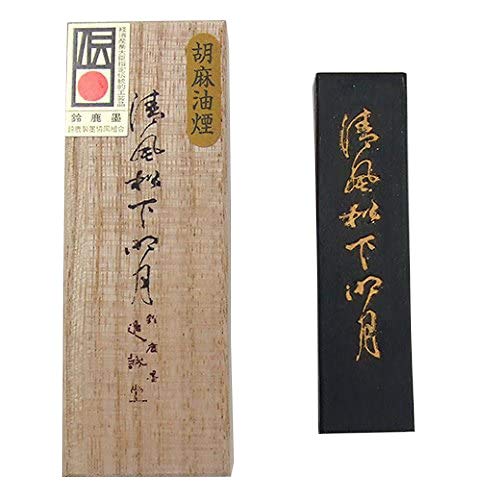 経済産業大臣指定伝統的工芸品
鈴鹿墨
鈴鹿製墨協同組合
胡麻油煙
清風松下明月
鈴鹿墨
進誠堂
清風松下明月